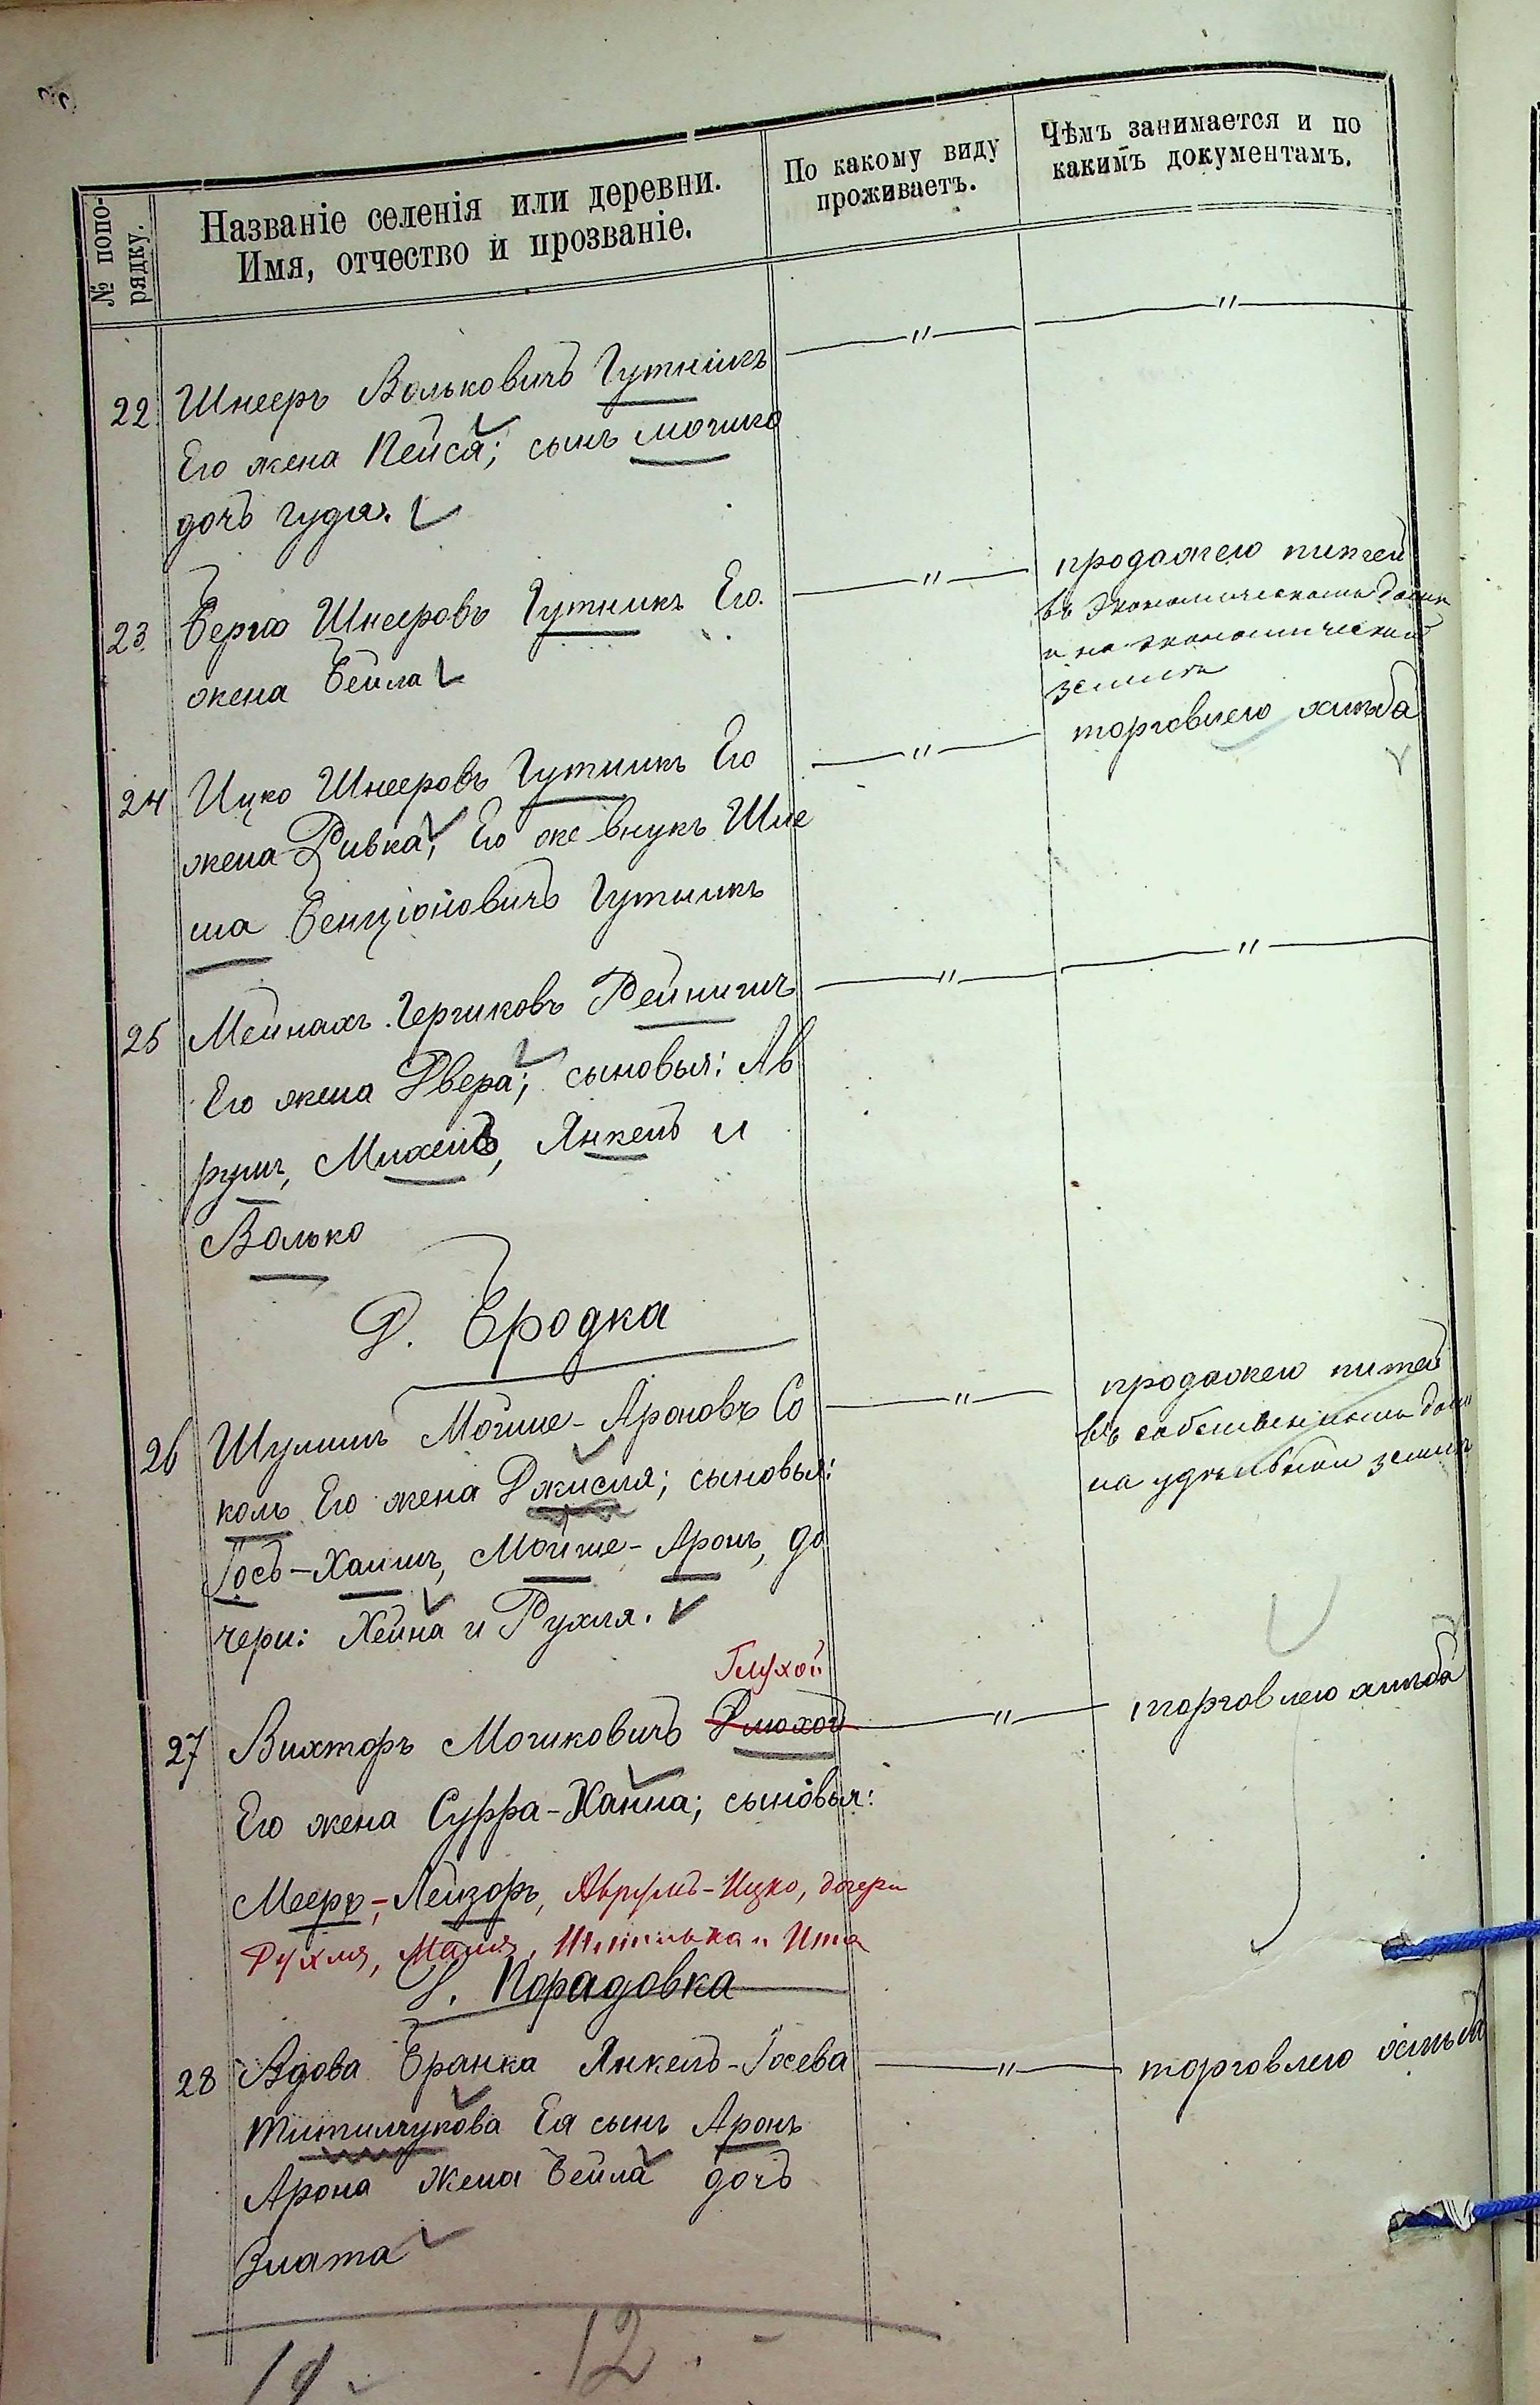 № попо-
рядку.
Названіе селенія или деревни.
Имя, отчество и прозваніе.
По какому виду
проживаетъ.
Чѣмъ занимается и по
какимъ документамъ.
22 Шнееръ Вольковичъ Гутникъ — " — — " —
Его жена Пейся; сынъ Мошко
дочь Гудя.
23 Берко Шнееровъ Гутникъ Его — " — продажею питей
жена Бейла
въ экономическомъ домѣ
и на экономической
землѣ
24 Ицко Шнееровъ Гутникъ Его — " — торговлею хлѣба
жена Ривка; Его же внукъ Шле
ма Бенціоновичъ Гутникъ
25 Мейнахъ Гершковъ Рейнишъ — " — — " —
Его жена Двера; сыновья: Ав
румъ, Михель, Янкель и
Волько
Д. Бродка
26 Шулимъ Мойше-Ароновъ Со — " — продажею питей
коль Его жена Джися; сыновья:
въ собственномъ домѣ
на удѣльной землѣ
Іось-Хаимъ, Мойше-Аронъ, до
чери: Хейна и Рухля.
Глухой
27 Вихторъ Мошковичъ Глюхой — " — торговлею хлѣба
Его жена Сурра-Ханна; сыновья:
Мееръ-Лейзоръ, Аврумъ-Ицко, дочери
Рухля, Маля, и Ита
Д. Порадовка
28 Вдова Бранка Янкель-Іосева — " — торговлею хлѣба
Титимчукова Ея сынъ Аронъ
Арона жена Бейла дочь
Злата
12